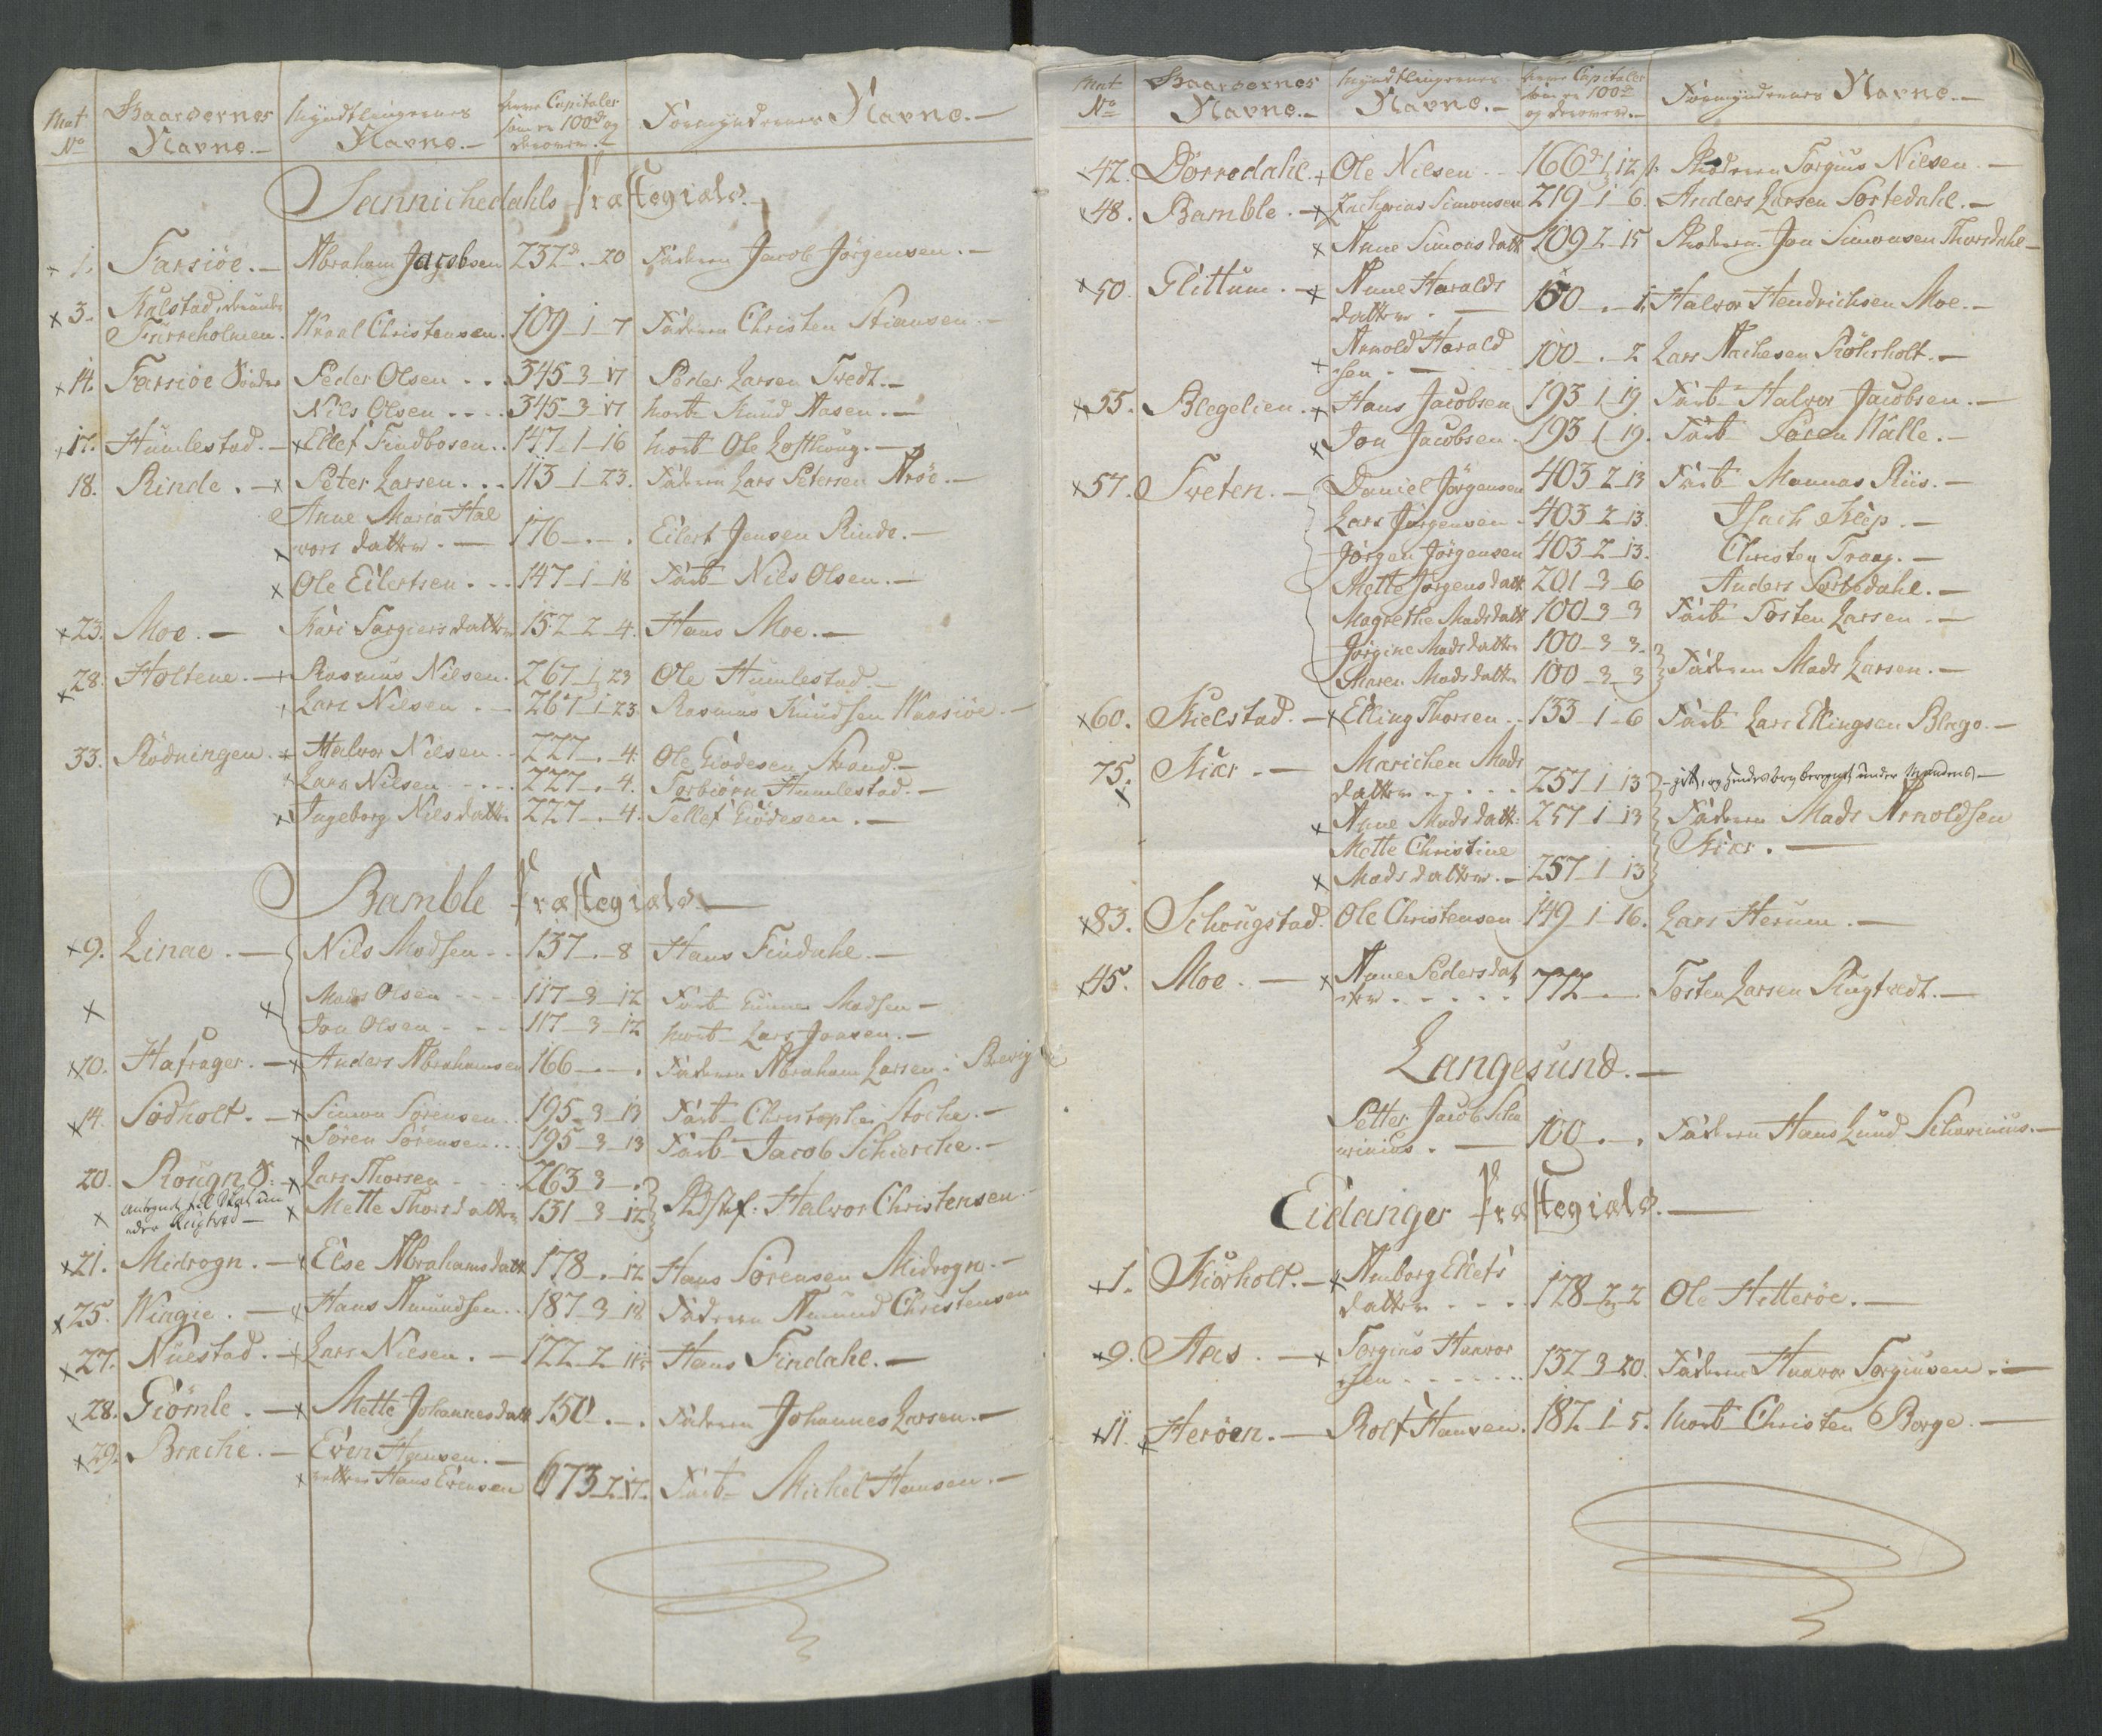 Mat No | Gaardernes Navne.- | Myndtlingernes Navne.- | deres Capitaler som er 100d og derover.- | Formyndernes Navne.-
Sannichedahls Præstegield.-
x 1. Farsiöe.- Abraham Jacobsen 232d - . - 20 Faderen Jacob Jörgensen.-
x 3. Kalstad, derunder
Furreholmen. Wraal Christensen. 109 - 1 - 7 Faderen Christen Stiansen.-
x 14. Farsiöe Sönder Peder Olsen . . 345 - 3 - 17 Peder Larsen Tvedt.-
Nils Olsen . . . . 345 - 3 - 17 morb Knud Aasen.-
x 17. Humlestad.- x Ellef Findbosen . . 147 - 1 - 16 morb Ole Lofthoug.-
18. Rinde.- x Peter Larsen . . . 113 - 1 - 23. Faderen Lars Petersen Aröe.-
Anne Maria Hal
x vors datter.- 176 - . - . Eilert Jensen Rinde.-
x Ole Eilertsen . . . 147 - 1 - 18 Farb Nils Olsen.-
x 23. Moe.- Kari Torgiersdatter 152 - 2 - 4. Hans Moe.-
x 28. Holtene.- x Rasmus Nilsen. 267 - 1 - 23 Ole Humlestad.-
x Lars Nilsen . - 267 - 1 - 23. Rasmus Knudsen Waasiöe.-
33. Rödningen. x Halvor Nilsen . . 227 - . - 4. Ole Giödesen Strand.-
x Lars Nilsen . . . . 227 - . - 4. Torbiörn Humlestad.-
x Ingeborg Nilsdatter 227 - . - 4. Tellef Giödesen.-
Bamble Præstegield.-
x 9. Linae.- Nils Madsen . . 137 - . - 8 Hans Findahl.-
x x Mads Olsen . . . . 117 - 3 - 12 Farb Gunner Madsen -
Jon Olsen . . . 117 - 3 - 12 morb Lars Joasen.-
x 10. Hafrager.- x Anders Abrahamsen 166 - . - . Faderen Abraham Larsen i Brevig
x 14. Sodholt.- x Simon Sörensen . . 195 - 3 - 13 Farb Christopher Stoche.-
x Sören Sörensen . . . 195 - 3 - 13 Farb Jacob Schierche.-
20. Rougn S: x Lars Thorsen . . . 263 - 3 - .
x antegnet til Skat un
der Rugtved - x Mette Thorsdatter 131 - 3 - 12 } Halvor Christensen
x 21. Midrogn.- x Else Abrahamsdatt 178 - . - 12 Hans Sörensen Midrogn.-
x 25. Wingie.- x Hans Amundsen . . 187 - 3 - 18 Faderen Amund Christensen
x 27. Nuestad.- x Lars Nilsen.- 122 - 2 - 11 Hans Findahl.-
x 28. Giömle.- x Mette Johannesdatt 150 - . - . Faderen Johannes Larsen.-
x 29. Brache.- Even Hansen.-
x Hans Evensen 673 - 2 - 17. Farb Michel Hansen.-
Mat No | Gaardernes Navne.- | Myndtlingernes Navne.- | deres Capitaler som er 100d og derover.- | Formyndernes Navne.-
x 42. Dörredahl. x Ole Nilsen . . 166d - 1 - 12 Broderen Torgius Nilsen.-
x 48. Bamble.- x Zacharias Simonsen 219 - 1 - 6. Anders Larsen Sortedahl.-
x Anne Simonsdatt 109 - 2 - 15 Broderen Jon Simonsen Thorsdahl-
x 50. Flittum.- x Anne Haralds
datter.- 100 - . - 1. Halvor Hendrichsen Moe.-
Arnold Harald
x sen . - 100 - . - 2 Lars Aachesen Röhrholt.-
x 55. Blegelien. x Hans Jacobsen 193 - 1 - 19. Farb Halvor Jacobsen.-
x Jon Jacobsen. 193 - 1 - 19. Farb Sören Walle.-
x 57. Tveten.- Daniel Jörgensen 403 - 2 - 13 Farb Mannas Riis.-
Lars Jörgensen. 403 - 2 - 13. Isach -
Jörgen Jörgensen 403 - 2 - 13. Christen Traag.-
Mette Jörgensdatt 201 - 3 - 6 Anders Sortedahl.-
Magrethe Madsdatt 100 - 3 - 3 Farb Torsten Larsen.-
Jörgine Madsdatter 100 - 3 - 3.
Maren Madsdatter 100 - 3 - 3 } Faderen Mads Larsen.-
x 60. Kielstad.- x Elling Thorsen . . 133 - 1 - 6 Farb Lars Ellingsen Blege.-
75. Kiær.- Marichen Mads
datter . . . . . 257 - 1 - 13 - gift, og hendes bereignet under Mandens -
x Anne Madsdatt: 257 - 1 - 13 Faderen Mads Arnoldsen
Mette Christine Kiær.-
x Madsdatter.- 257 - 1 - 13
x 83. Schougstad. Ole Christensen. 149 - 1 - 16. Lars Herum.-
x 45. Moe.- x Anne Pedersdat
ter . . . . . 772 - . - Torsten Larsen Rugtvedt.-
Langesund.-
Petter Jacob Scha
vinius.- 100 - . - . Faderen Hans Lund Schavinius.-
Eidanger Præstegield.-
x 1. Kiörholt.- x Amborg Ellefs
datter . . . 128 - 2 - 2 Ole Hitteröe.-
x 9. Aas.- x Torgius Huavor
sen . . . . . . 132 - 3 - 20. Faderen Huavor Torgiusen.-
x 11. x Heröen.- Rolf Hansen. 182 - 1 - 5. morb Christen Borge.-